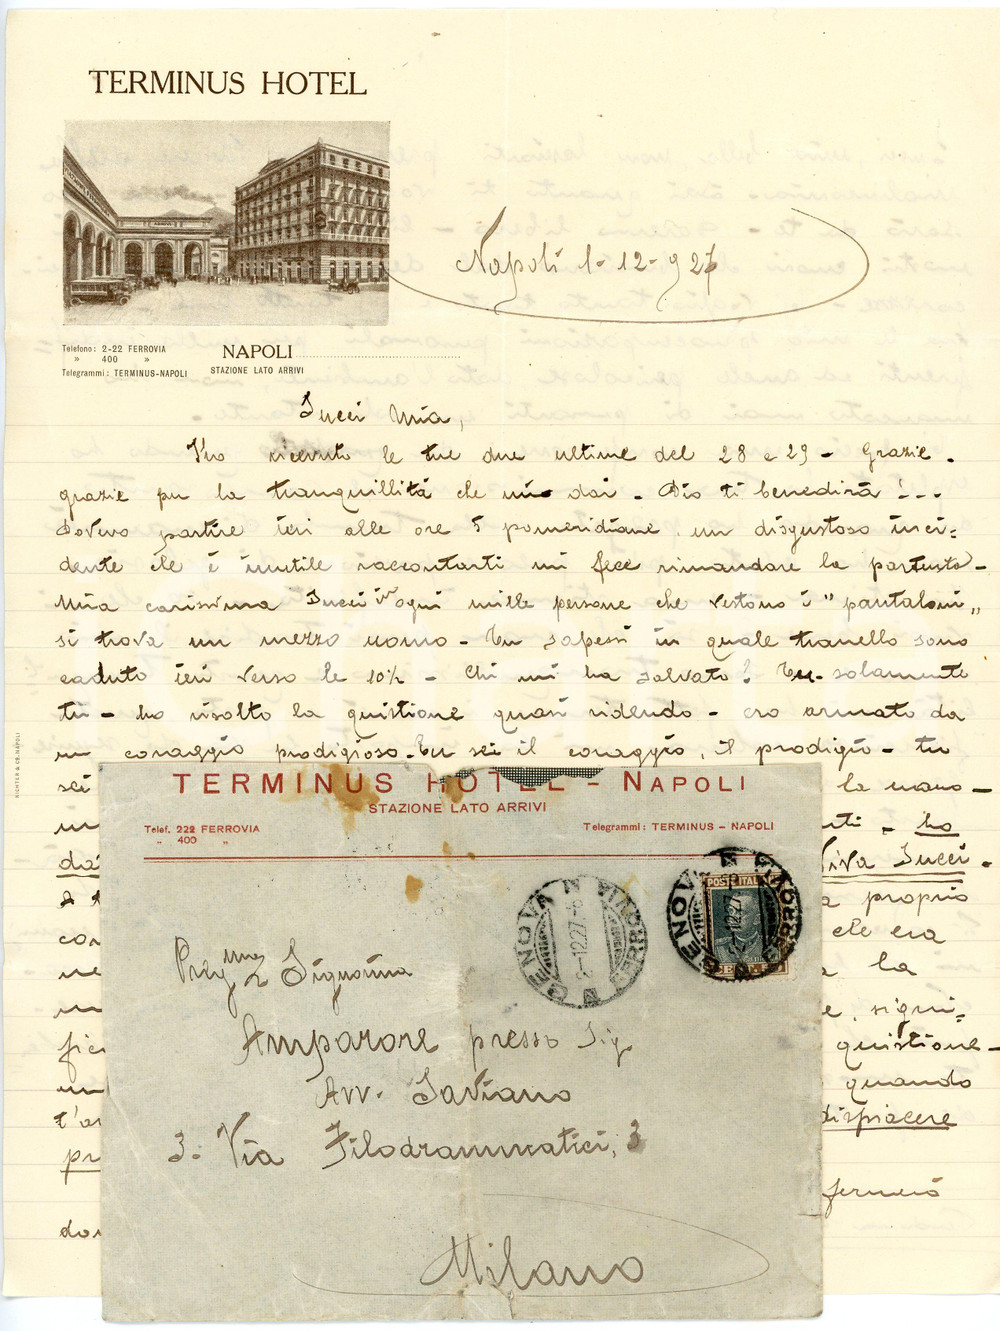 TERMINUS HOTEL
Napoli 1-12-927
Telefono: 2-22 FERROVIA
" 400 "
Telegrammi: TERMINUS-NAPOLI
NAPOLI
STAZIONE LATO ARRIVI
RICHTER & Co. NAPOLI
Succi Mia,
Ho ricevuto le tue due ultime del 28 e 29 - Grazie -
grazie per la tranquillità che mi dai - Dio ti benedirà!...
Dovevo partire ieri alle ore 5 pomeridiane, un disgustoso inci=
dente che è inutile raccontarti mi fece rimandare la partenza -
Mia carissima Succi ogni mille persone che vestono i "pantaloni"
si trova un mezzo uomo - Tu sapessi in quale tranello sono
caduto ieri verso le 10½ - Chi mi ha salvato? Tu - solamente
tu - ho risolto la quistione quasi ridendo - ero armato da
un coraggio prodigioso - Tu sei il coraggio, il prodigio - tu
sei la mano -
ti - ho
Viva Succi -
proprio
che era
la
e, signi=
quistione -
quando
dispiacere
fermerò
TERMINUS HOTEL - NAPOLI
STAZIONE LATO ARRIVI
Telef. 222 FERROVIA
" 400 "
Telegrammi: TERMINUS - NAPOLI
GENOVA FERROVIA
2-12.27-6
GENOVA FERROVIA
2-12.27
POSTE ITAL
Signorina
Amparore presso Sig.
Avv. Saviano
3. Via Filodrammatici, 3
Milano